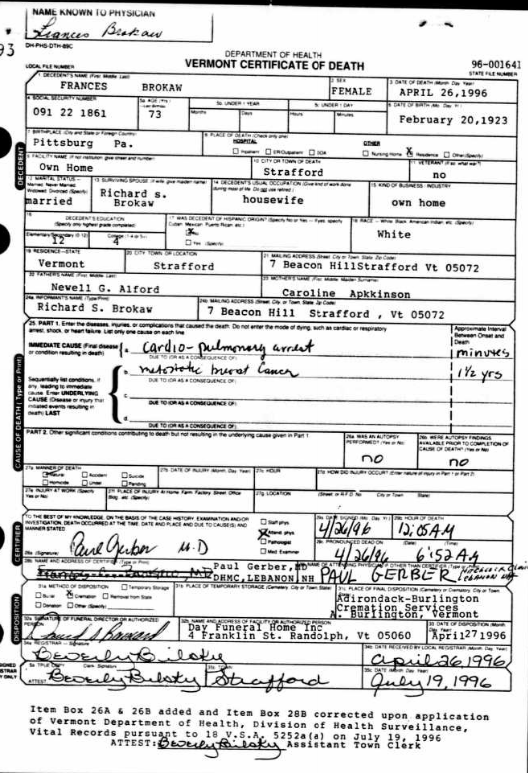 NAME KNOWN TO PHYSICIAN
Frances Brokaw
93
DH-PHS-DTH-89C
DEPARTMENT OF HEALTH
LOCAL FILE NUMBER
VERMONT CERTIFICATE OF DEATH
96-001641
STATE FILE NUMBER
1. DECEDENT'S NAME (First, Middle, Last)
2. SEX
3. DATE OF DEATH (Month, Day, Year)
FRANCES BROKAW
FEMALE
APRIL 26,1996
4. SOCIAL SECURITY NUMBER
5a. AGE (Yrs)
5b. UNDER 1 YEAR
5c. UNDER 1 DAY
6. DATE OF BIRTH (Mo. Day Yr.)
091 22 1861
73
Months
Days
Hours
Minutes
February 20,1923
7. BIRTHPLACE (City and State or Foreign Country)
8. PLACE OF DEATH (Check only one)
Pittsburg Pa.
HOSPITAL
OTHER
Inpatient
ER/Outpatient
DOA
Nursing Home
X Residence
Other (Specify)
9. FACILITY NAME (If not institution, give street and number)
10. CITY OR TOWN OF DEATH
Own Home
Strafford
no
12. MARITAL STATUS
13. SURVIVING SPOUSE (If wife, give maiden name)
14. DECEDENT'S USUAL OCCUPATION
15. KIND OF BUSINESS / INDUSTRY
married
Richard s.
Brokaw
housewife
own home
DECEDENT'S EDUCATION
17. WAS DECEDENT OF HISPANIC ORIGIN?
12
4
White
19. RESIDENCE-STATE
20. CITY, TOWN, OR LOCATION
21. MAILING ADDRESS
Vermont
Strafford
7 Beacon HillStrafford Vt 05072
22. FATHER'S NAME (First, Middle, Last)
23. MOTHER'S NAME
Newell G. Alford
Caroline Apkkinson
24a. INFORMANT'S NAME (Type/Print)
24b. MAILING ADDRESS (Street, City or Town, State, Zip Code)
Richard S. Brokaw
7 Beacon Hill Strafford , Vt 05072
25. PART 1. Enter the diseases, injuries, or complications that caused the death. Do not enter the mode of dying, such as cardiac or respiratory
arrest, shock, or heart failure. List only one cause on each line.
Approximate Interval Between Onset and Death
IMMEDIATE CAUSE (Final disease or condition resulting in death)
a. cardio-pulmonary arrest
minutes
DUE TO (OR AS A CONSEQUENCE OF)
b. metastatic breast cancer
1½ yrs
DUE TO (OR AS A CONSEQUENCE OF)
Sequentially list conditions, if any, leading to immediate cause. Enter UNDERLYING CAUSE (Disease or injury that initiated events resulting in death) LAST
c.
DUE TO (OR AS A CONSEQUENCE OF)
d.
PART 2. Other significant conditions contributing to death but not resulting in the underlying cause given in Part 1.
26a. WAS AN AUTOPSY PERFORMED? (Yes or No)
26b. WERE AUTOPSY FINDINGS AVAILABLE PRIOR TO COMPLETION OF CAUSE OF DEATH? (Yes or No)
no
no
27a. MANNER OF DEATH
27b. DATE OF INJURY (Month, Day, Year)
27c. HOUR
27d. HOW DID INJURY OCCUR?
Natural
Accident
Suicide
Homicide
Pending
27e. INJURY AT WORK
27f. PLACE OF INJURY
27g. LOCATION
TO THE BEST OF MY KNOWLEDGE, ON THE BASIS OF THE CASE HISTORY, EXAMINATION AND/OR
INVESTIGATION, DEATH OCCURRED AT THE TIME, DATE AND PLACE AND DUE TO CAUSE(S) AND
MANNER STATED
Staff phys.
Attend. phys.
Pathologist
Med. Examiner
4/26/96
12:05 A.M
Paul Gerber M.D
4/26/96
6:52 A.M
Paul Gerber, MD
DHMC, LEBANON NH
PAUL GERBER
31a. METHOD OF DISPOSITION
Burial
X Cremation
Temporary Storage
Removal from State
Donation
Other (Specify)
31b. PLACE OF TEMPORARY STORAGE
31c. PLACE OF FINAL DISPOSITION
Adirondack-Burlington
Cremation Services
A. Burlington, Vermont
32b. NAME AND ADDRESS OF FACILITY OR AUTHORIZED PERSON
33. DATE OF DISPOSITION
Day Funeral Home Inc
4 Franklin St. Randolph, Vt 05060
April27 1996
34b. DATE RECEIVED BY LOCAL REGISTRAR
Beverly Bilsky
April 26, 1996
ATTEST: Beverly Bilsky
Strafford
July 19, 1996
DECEDENT
CAUSE OF DEATH (Type or Print)
CERTIFIER
DISPOSITION
Item Box 26A & 26B added and Item Box 28B corrected upon application
of Vermont Department of Health, Division of Health Surveillance,
Vital Records pursuant to 18 V.S.A. 5252a(d) on July 19, 1996
ATTEST: Beverly Bilsky Assistant Town Clerk